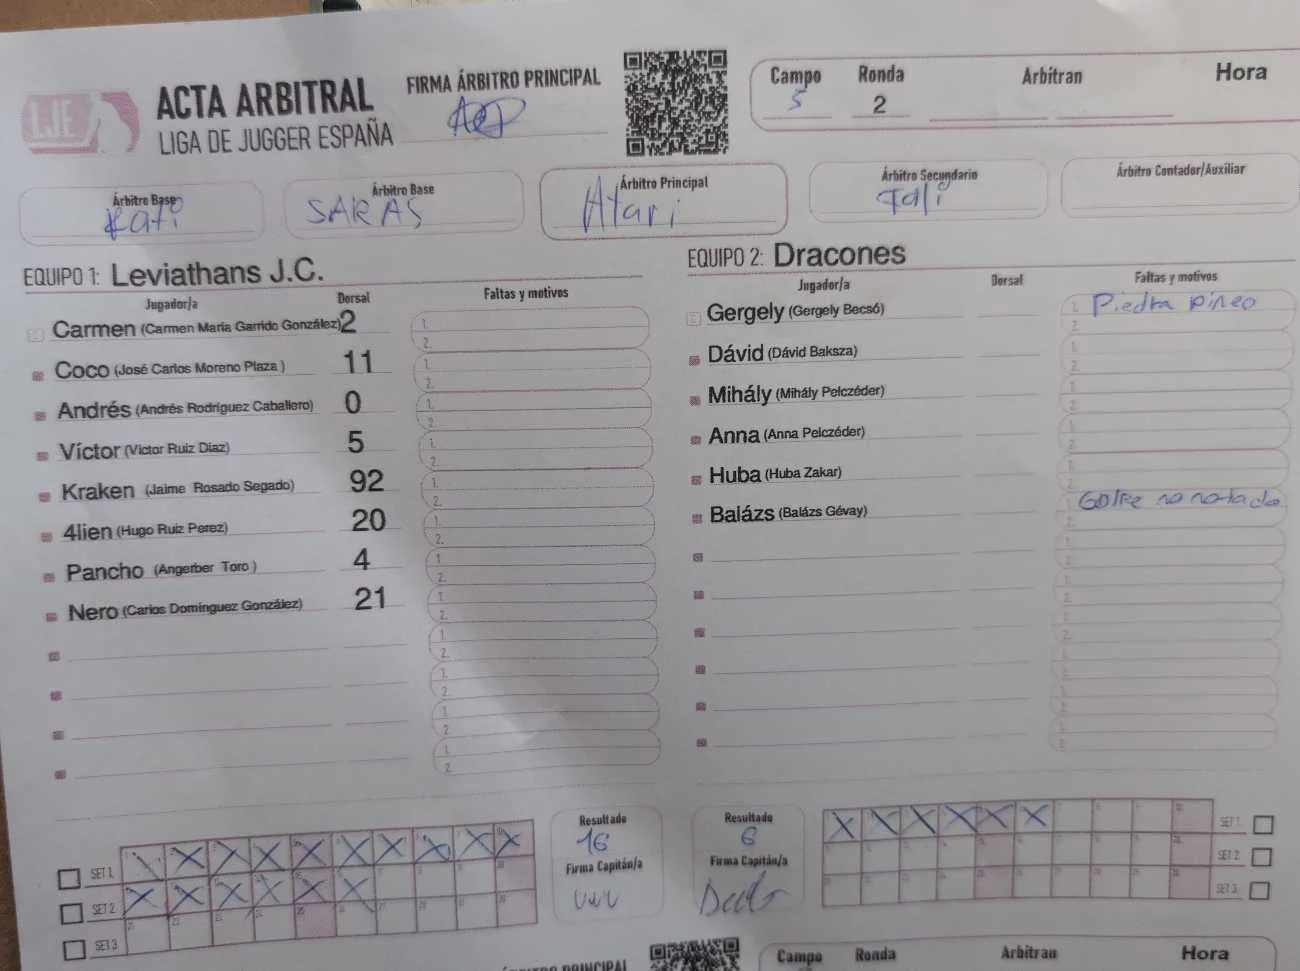 LJE
ACTA ARBITRAL
LIGA DE JUGGER ESPAÑA
FIRMA ÁRBITRO PRINCIPAL
Campo Ronda Arbitran Hora
5 2
Árbitro Base Árbitro Base Árbitro Principal Árbitro Secundario Árbitro Contador/Auxiliar
Kati SARAS Atari
EQUIPO 1: Leviathans J.C.
Jugador/a Dorsal Faltas y motivos
Carmen (Carmen María Garrido González) 2 1.
2.
Coco (José Carlos Moreno Plaza ) 11 1.
2.
Andrés (Andrés Rodríguez Caballero) 0 1.
2.
Víctor (Victor Ruiz Díaz) 5 1.
2.
Kraken (Jaime Rosado Segado) 92 1.
2.
4lien (Hugo Ruiz Perez) 20 1.
2.
Pancho (Angerber Toro ) 4 1
2.
Nero (Carlos Domínguez González) 21 1.
2.
1.
2.
1.
2.
1.
2
1.
2.
EQUIPO 2: Dracones
Jugador/a Dorsal Faltas y motivos
Gergely (Gergely Becsó) 1. Piedra pineo
2.
Dávid (Dávid Baksza)
Mihály (Mihály Pelczéder)
Anna (Anna Pelczéder)
Huba (Huba Zakar)
Balázs (Balázs Gévay) Golpe no notado
SET 1
SET 2
SET 3
Resultado
16
Firma Capitán/a
Resultado
6
Firma Capitán/a
SET 1
SET 2
SET 3
ÁRBITRO PRINCIPAL
Campo Ronda Arbitran Hora